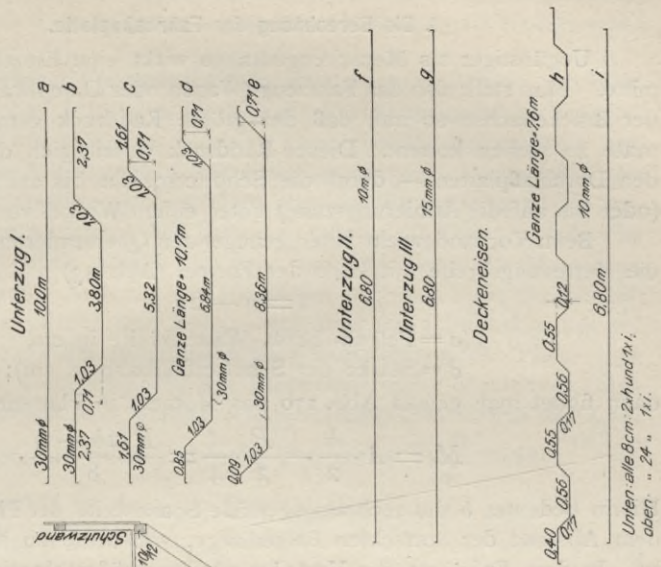 Unterzug I.
30mmφ 10,0m a
30mmφ b
2,37 0,71 1,03 3,80m 1,03 2,37
1,61 1,03 5,32 1,03 1,61 c
30mmφ 0,71
Ganze Länge = 10,7m
0,85 1,03 30mmφ 6,84m 1,03 0,71 d
0,09 1,03 30mmφ 8,36m 0,71 e
Unterzug II.
6,80 10mφ f
Unterzug III
6,80 15mmφ g
Deckeneisen.
Ganze Länge=7,6m
0,40 0,17 0,56 0,55 0,17 0,56 0,55 0,12 10mmφ h
6,80m i
Unten: alle 8cm: 2xh und 1xi,
oben: " 24 " 1xi.
Schutzwand
10/12